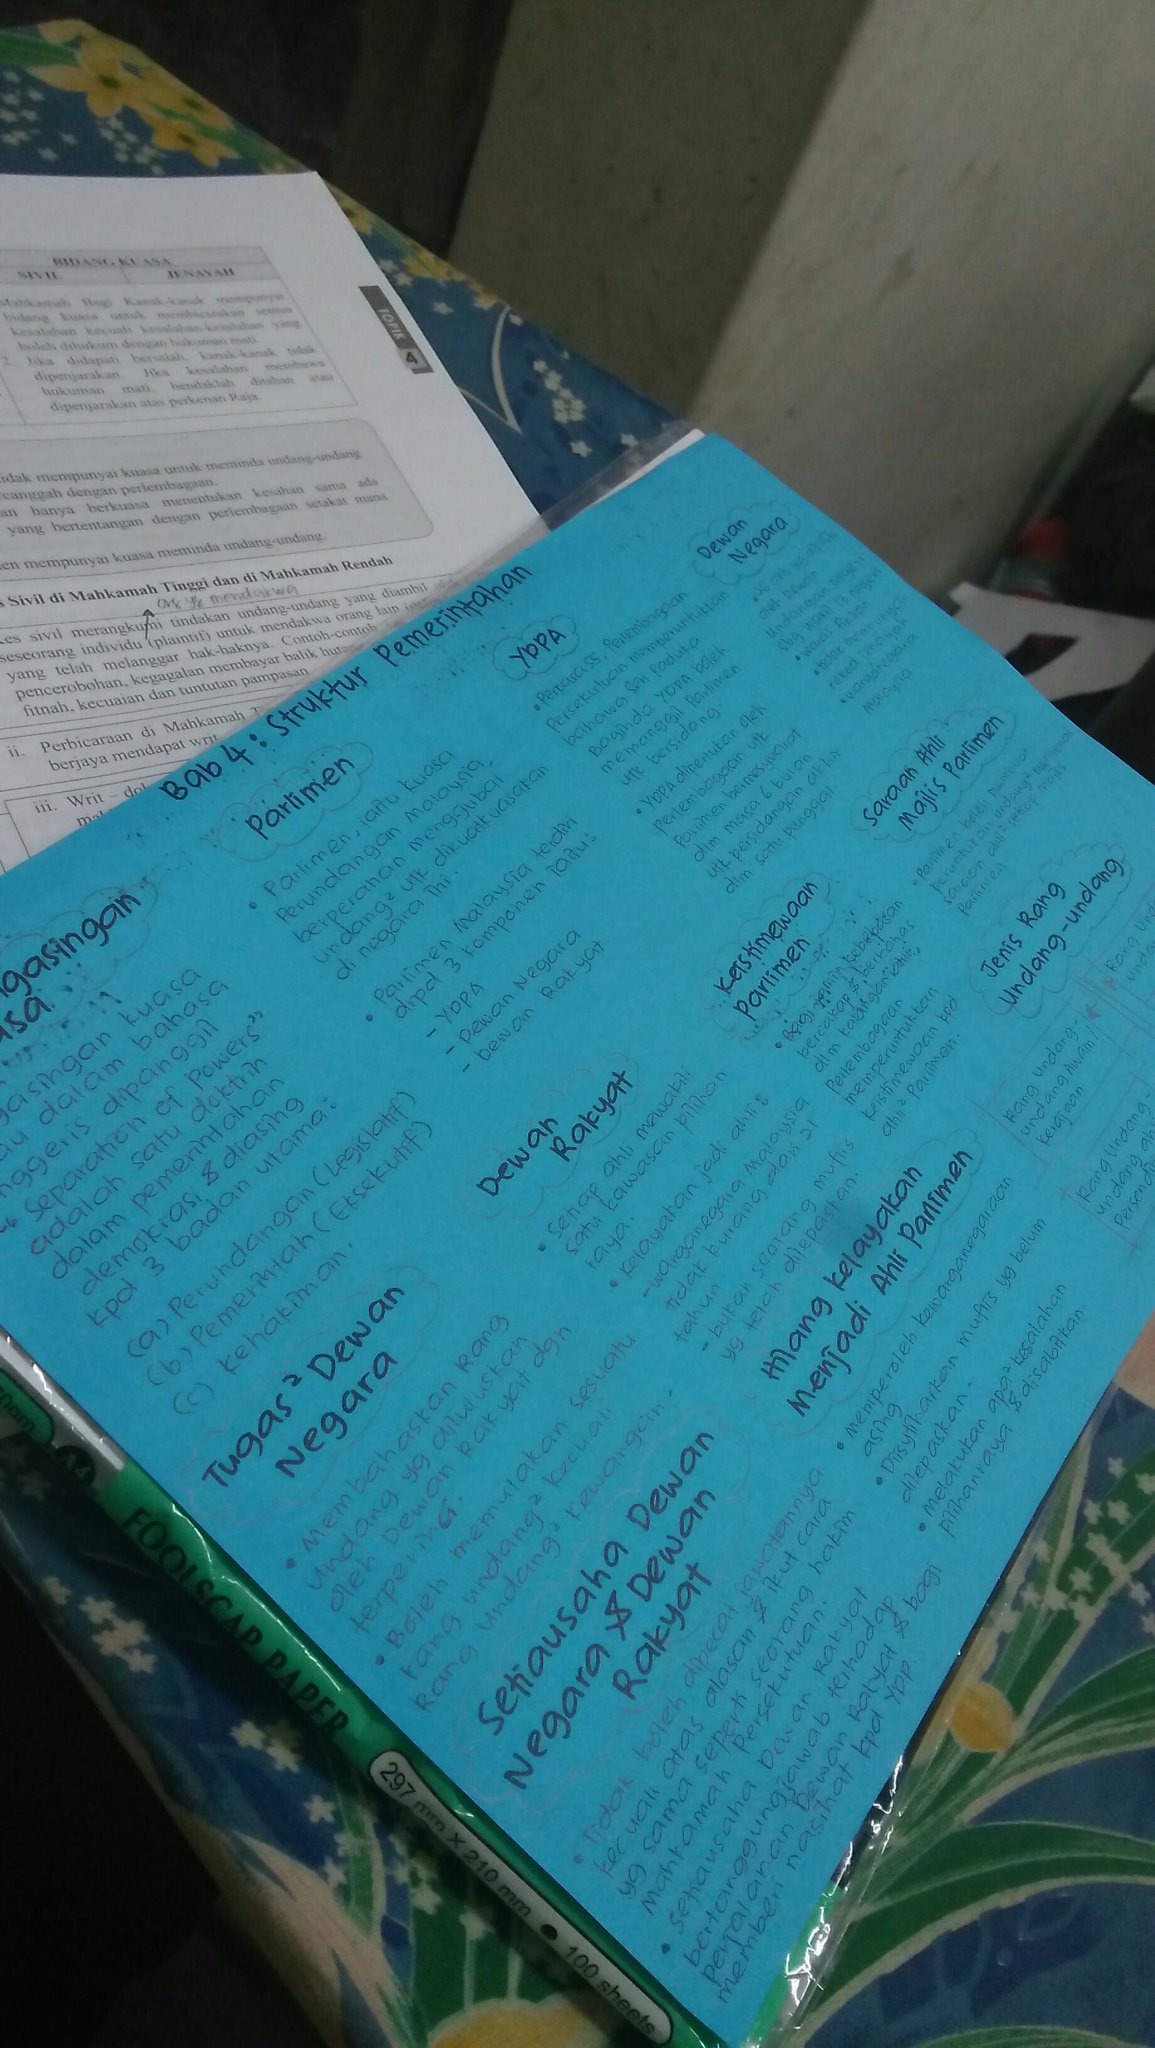 BIDANG KUASA
SIVIL JENAYAH
Mahkamah Bagi Kanak-kanak mempunyai
bidang kuasa untuk membicarakan semua
kesalahan kecuali kesalahan-kesalahan yang
boleh dihukum dengan hukuman mati.
2. Jika didapati bersalah, kanak-kanak tidak
dipenjarakan. Jika kesalahan membawa
hukuman mati, hendaklah ditahan atau
dipenjarakan atas perkenan Raja.
TOPIK 4
idak mempunyai kuasa untuk meminda undang-undang
rcanggah dengan perlembagaan.
an hanya berkuasa menentukan kesahan sama ada
yang bertentangan dengan perlembagaan setakat mana
en mempunyai kuasa meminda undang-undang.
s Sivil di Mahkamah Tinggi dan di Mahkamah Rendah
org yg mendakwa
kes sivil merangkumi tindakan undang-undang yang diambil
seseorang individu (plaintif) untuk mendakwa orang lain
yang telah melanggar hak-haknya. Contoh-contoh
pencerobohan, kegagalan membayar balik hutang
fitnah, kecuaian dan tuntutan pampasan
ii. Perbicaraan di Mahkamah T
berjaya mendapat writ
iii. Writ – do
Bab 4 : Struktur Pemerintahan
gasingan
asa
gasingan kuasa
au dalam bahasa
nggeris dipanggil
"Separation of Powers"
adalah satu doktrin
dalam pemerintahan
demokrasi & diasing
kpd 3 badan utama:
(a) Perundangan (Legislatif)
(b) Pemerintah (Eksekutif)
(c) Kehakiman.
Parlimen
• Parlimen, iaitu kuasa
Perundangan Malaysia,
berperanan menggubal
undang² utk dikuatkuasakan
di negara ini.
• Parlimen Malaysia terdiri
drpd 3 komponen iaitu:
- YDPA
- Dewan Negara
- Dewan Rakyat
YDPA
• Perkara 55, Perlembagaan
Persekutuan memperuntukkan
bahawa Seri Paduka
Baginda YDPA boleh
memanggil Parlimen
utk bersidang.
• YDPA ditentukan oleh
Perlembagaan utk
Parlimen bermesyuarat
dlm masa 6 bulan
utk persidangan akhir
dlm satu panggal
Dewan
Negara
oleh Dewan
Undangan Negeri
warganegara
Malaysia
Saraan Ahli
Majlis Parlimen
• Parlimen boleh membuat
peruntukan undang²
saraan ahli² tetap majlis
Parlimen
Keistimewaan
Parlimen
• Bagi jamin kebebasan
bercakap & berbahas
dlm kalangan ahli²,
Perlembagaan
memperuntukkan
keistimewaan kpd
ahli² Parlimen.
Jenis Rang
Undang-undang
Rang Undang-
undang Awam/
Kerajaan
Rang Und
unda
Rang Undang-
undang ahli
Persendi
Dewan
Rakyat
• Setiap ahli mewakili
satu kawasan pilihan
raya.
• Kelayakan jadi ahli:
- Warganegara Malaysia
tidak kurang dari 21
tahun
- bukan seorang muflis
yg telah dilepaskan.
Hilang Kelayakan
Menjadi Ahli Parlimen
• Memperoleh kewarganegaraan
asing
• Diisytiharkan muflis yg belum
dilepaskan.
• Melakukan apa² kesalahan
pilihanraya & disabitkan.
Tugas² Dewan
Negara
• Membahaskan Rang
Undang yg diluluskan
oleh Dewan Rakyat dgn
terperinci.
• Boleh memulakan sesuatu
rang undang² kecuali
Rang Undang² Kewangan.
Setiausaha Dewan
Negara & Dewan
Rakyat
• Tidak boleh dipecat jawatannya
kecuali atas alasan & ikut cara
yg sama seperti seorang hakim
Mahkamah Persekutuan.
• Setiausaha Dewan Rakyat
bertanggungjawab terhadap
perjalanan Dewan Rakyat & bagi
memberi nasihat kpd YDP.
A4
FOOLSCAP PAPER
297 mm X 210 mm ● 100 sheets